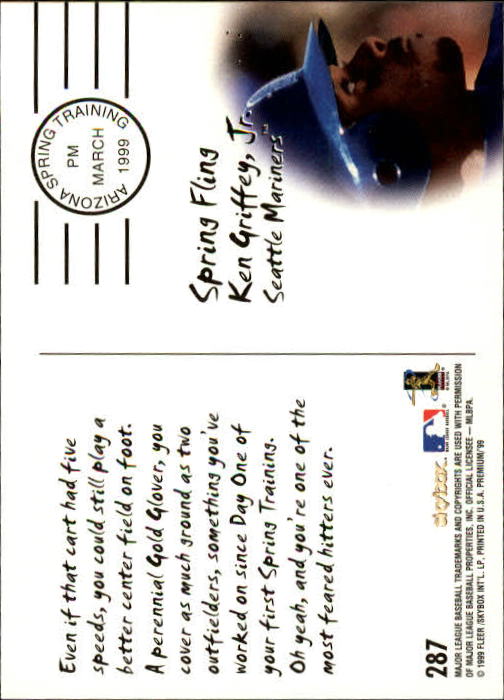 ARIZONA SPRING TRAINING
PM
MARCH
1999
Spring Fling
Ken Griffey, Jr.
Seattle Mariners™
Even if that cart had five
speeds, you could still play a
better center field on foot.
A perennial Gold Glover, you
cover as much ground as two
outfielders, something you've
worked on since Day One of
your first Spring Training.
Oh yeah, and you're one of the
most feared hitters ever.
287
skybox
MAJOR LEAGUE BASEBALL TRADEMARKS AND COPYRIGHTS ARE USED WITH PERMISSION
OF MAJOR LEAGUE BASEBALL PROPERTIES, INC. OFFICIAL LICENSEE — MLBPA.
© 1999 FLEER /SKYBOX INT'L. LP. PRINTED IN U.S.A. PREMIUM/'99